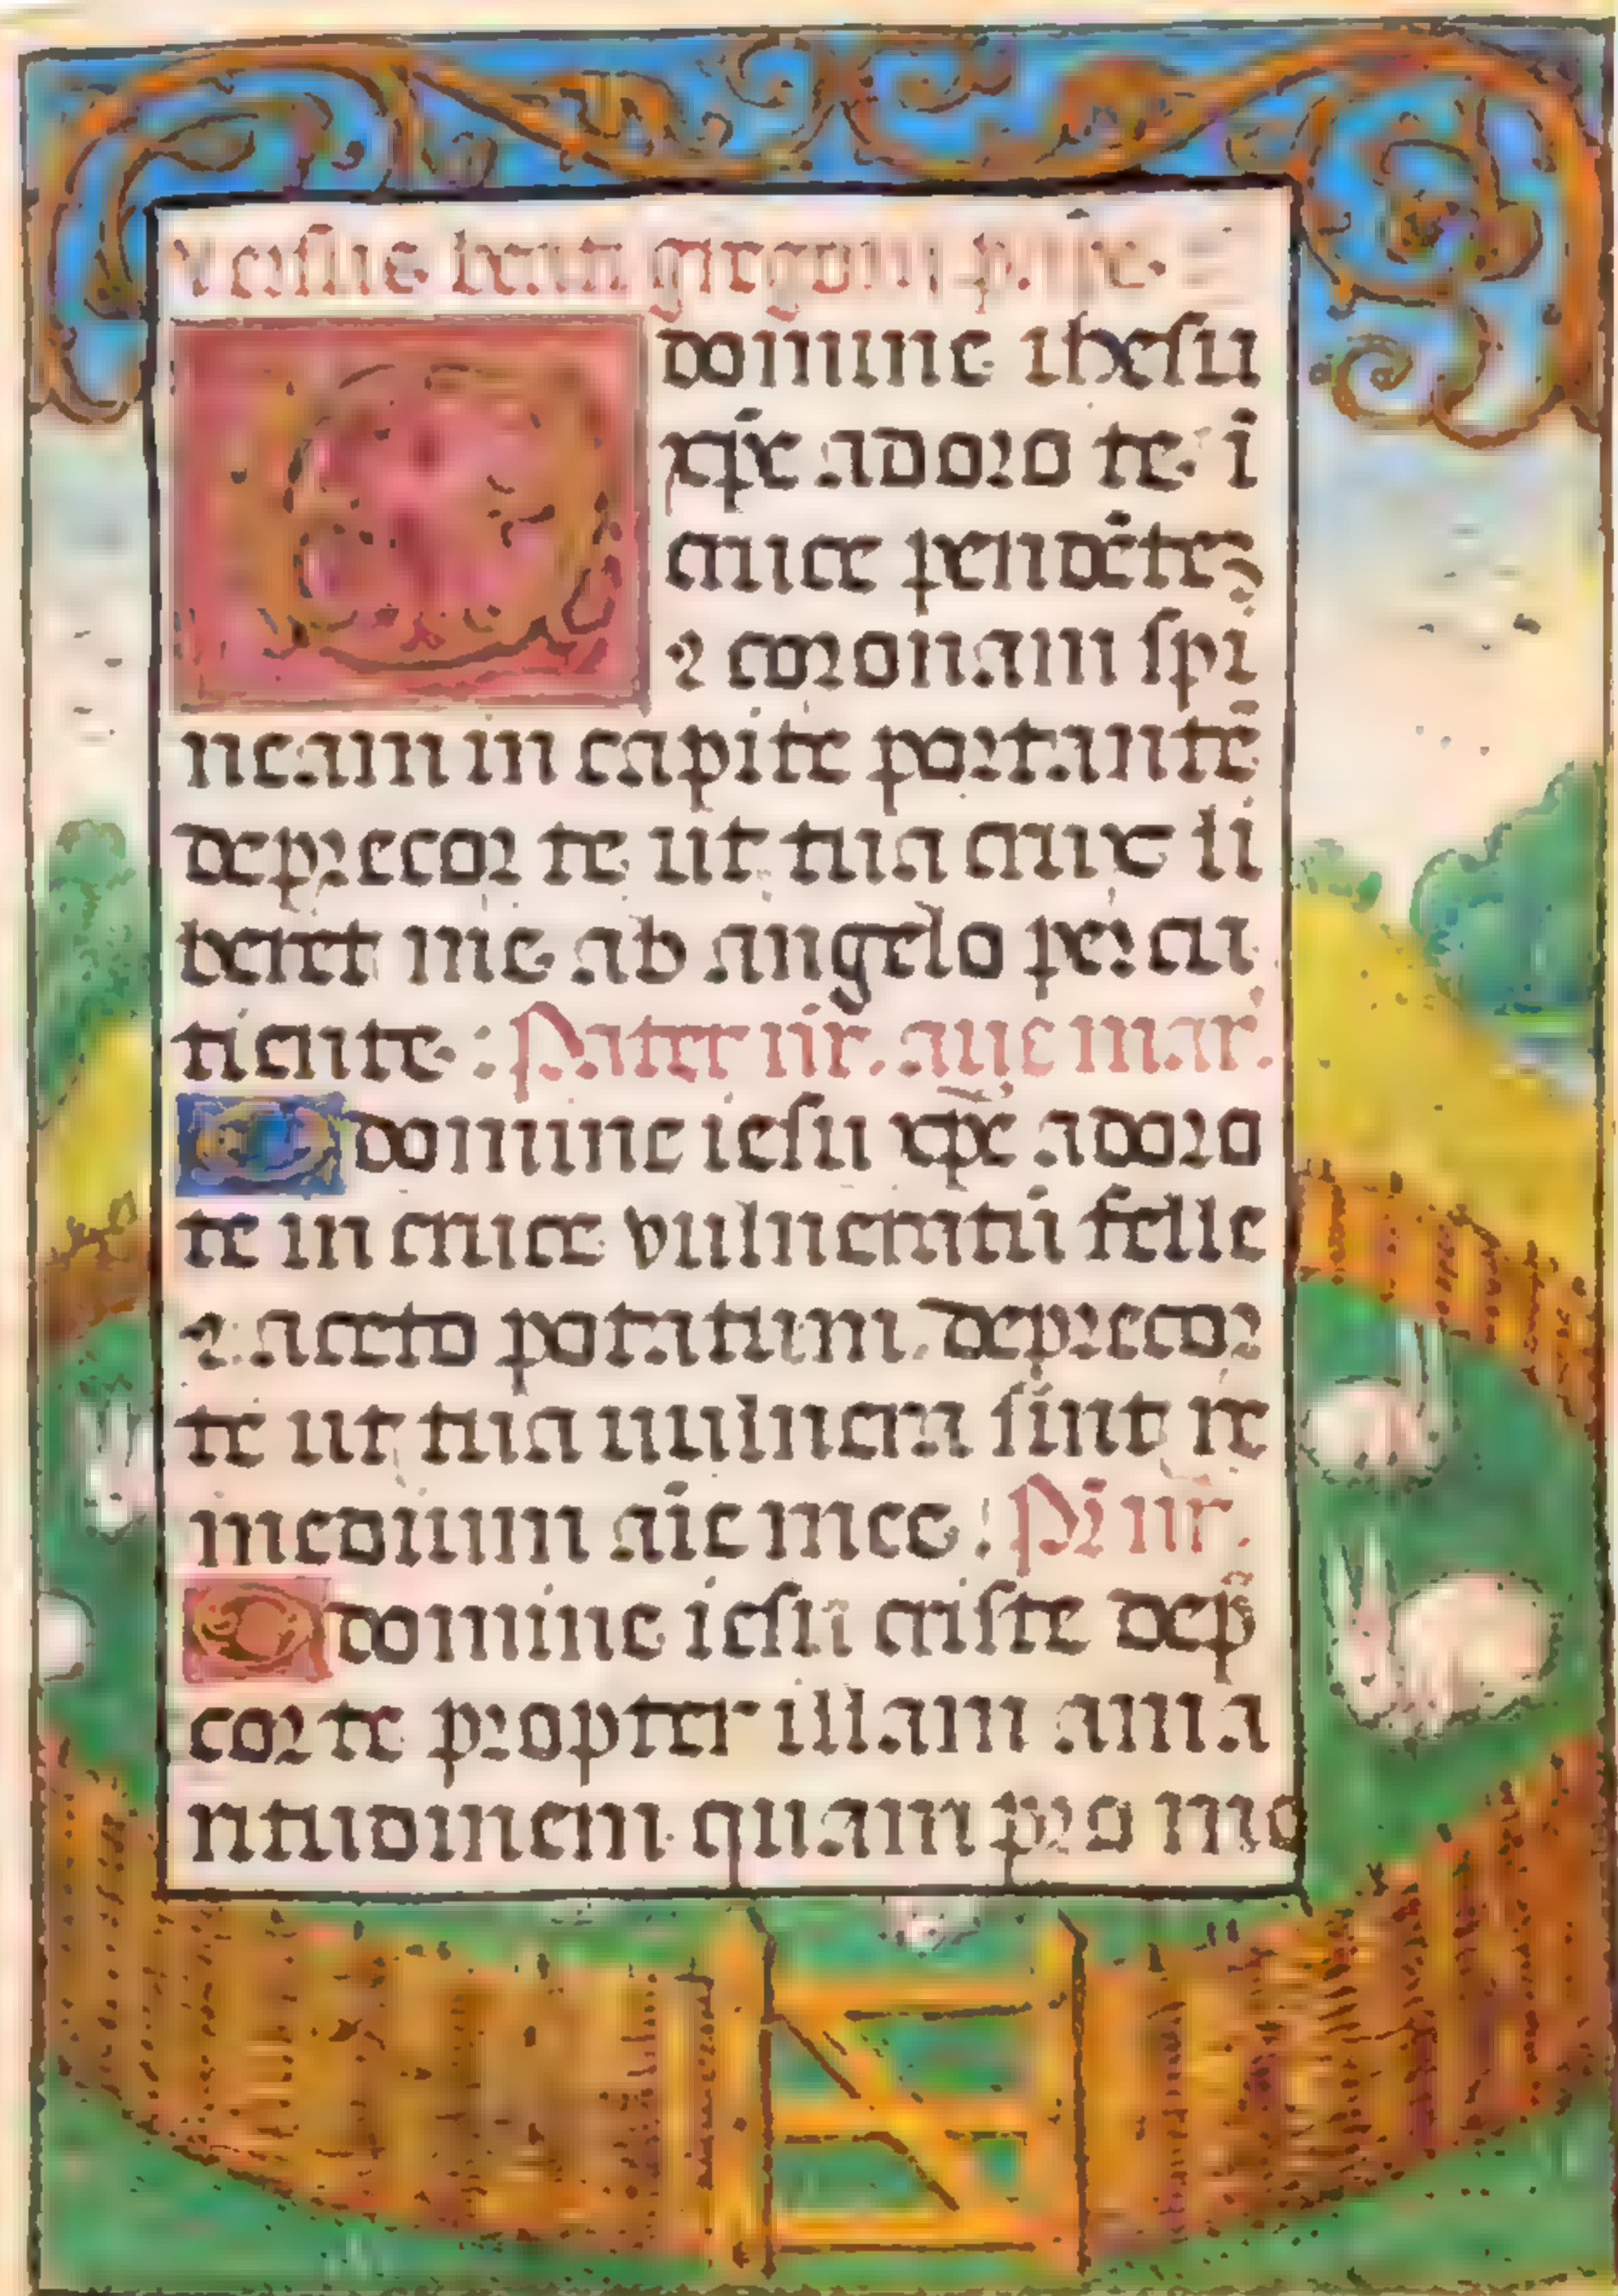 versus beati gregorii p.
O domine ihesu
xp̄e adoro te ī
cruce pendētez
⁊ coronam spi
neam in capite portantē
deprecor te ut tua crux li
beret me ab angelo percu
tiente : Pater nr̄. aue mar.
O domine iesu xp̄e adoro
te in cruce vulneratū felle
⁊ aceto potatum deprecor
te ut tua uulnera sint re
medium aīe mee : Pr̄ nr̄.
O domine iesu criste dep̄
cor te propter illam ama
ritudinem quam pro me